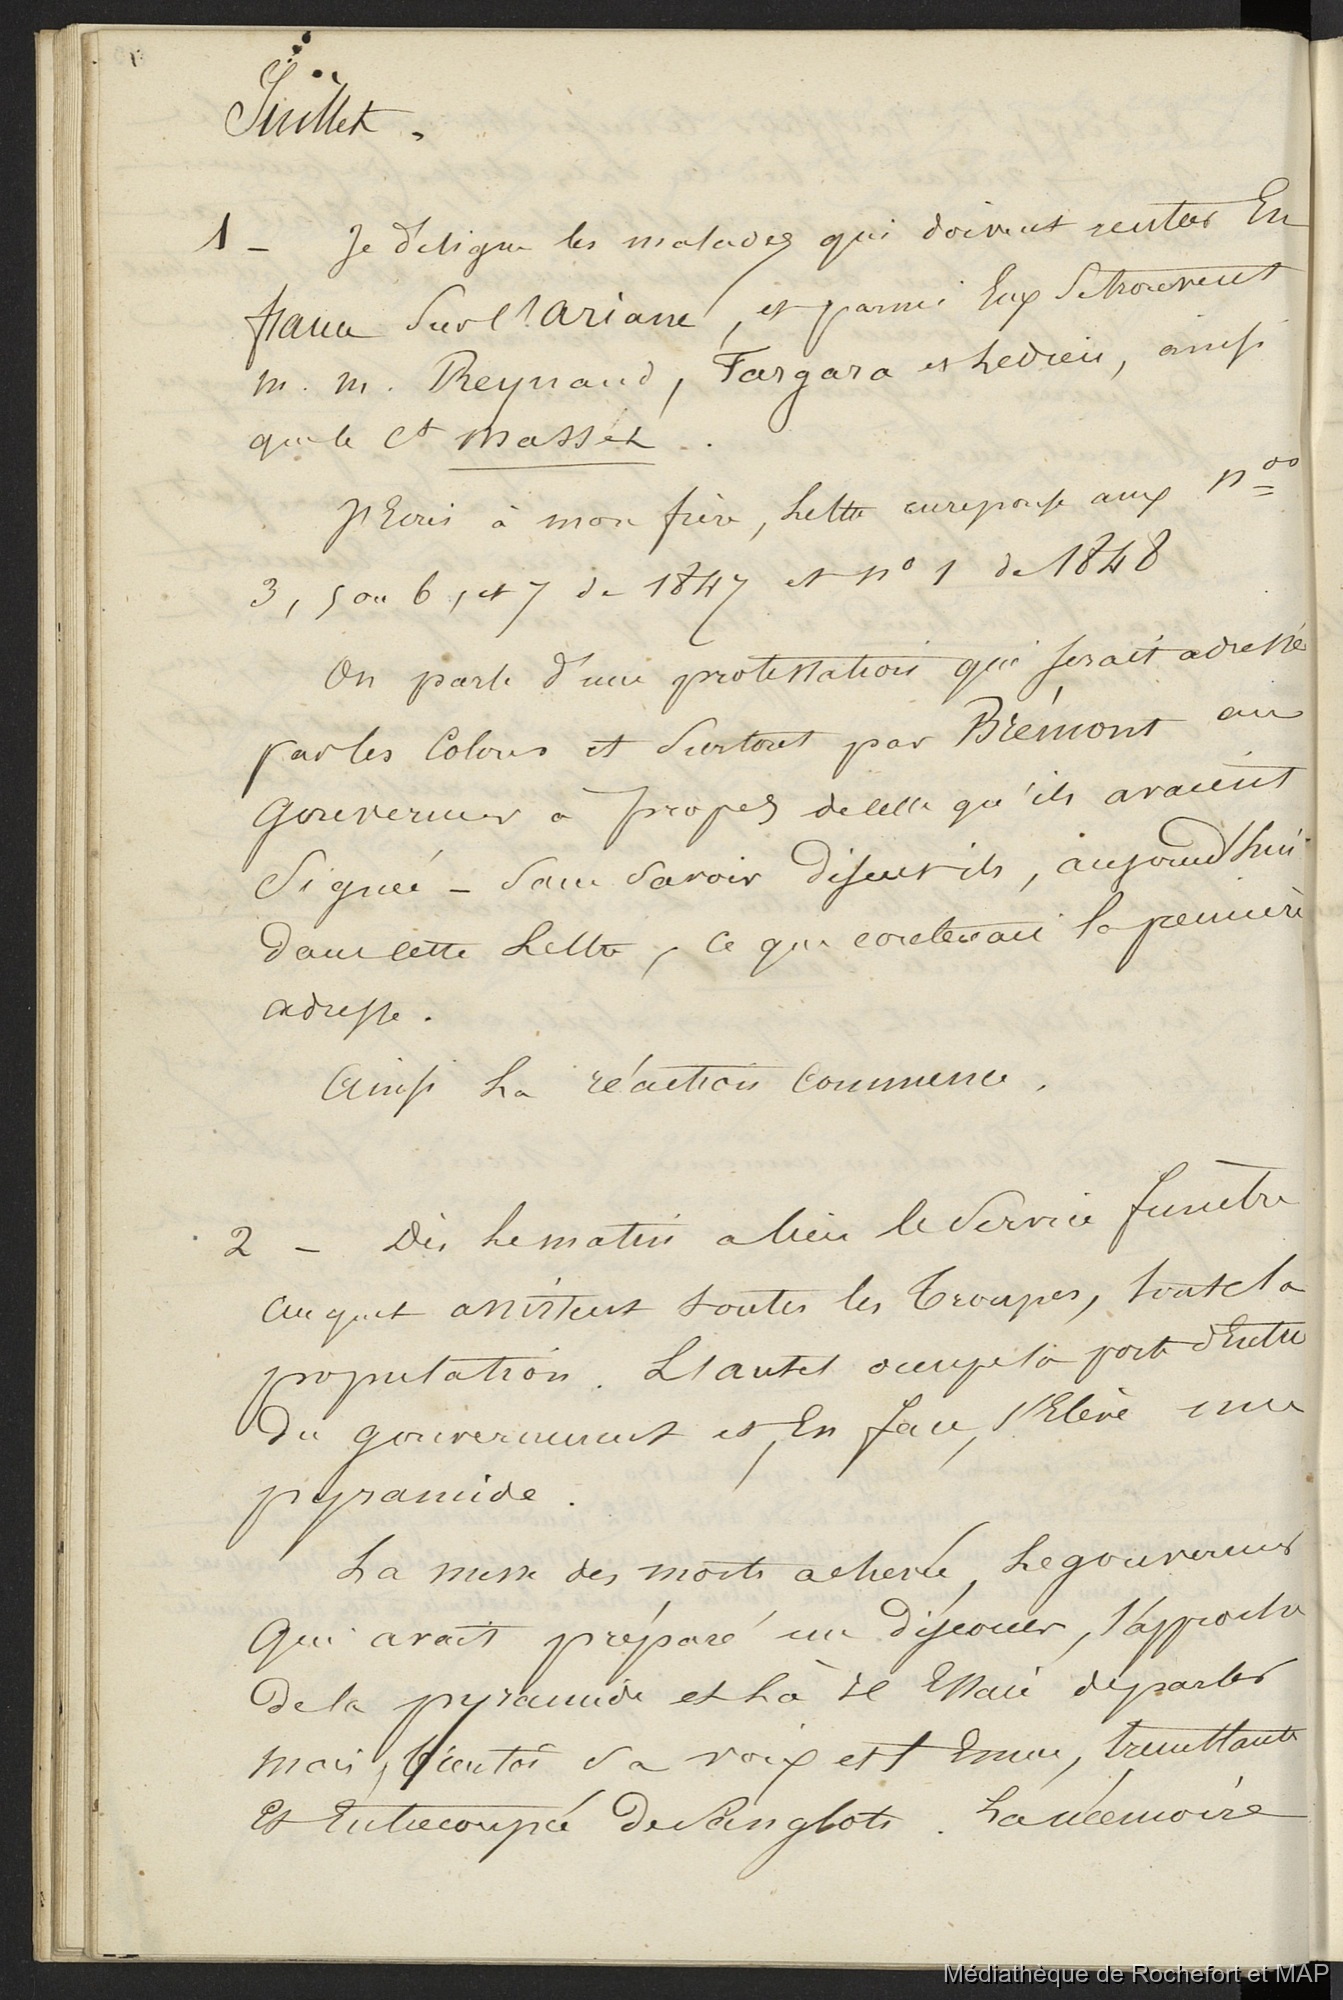 Juillet.
1 - Je désigne les malades qui doivent rentrer En
france sur l'Ariane, et parmi Eux se trouvent
m. m. Reynaud, Fargara et Ledieu, ainsi
que le Ct Masset.
J'Ecris à mon frère, Lettre en reponse aux nos
3, 5 ou 6, et 7 de 1847 et no 1 de 1848
On parle d'une protestation qui serait adressée
par les Colons et surtout par Brémont au
Gouverneur à propos de celle qu'ils avaient
Signée - sans savoir disent-ils, aujourd'hui
dans cette Lettre, ce que contenait la première
adresse.
Ainsi La réaction Commence.
2 - Dès Le matin a lieu le Service funèbre
auquel assistent toutes les Troupes, toute la
population. L'autel occupe la porte d'Entrée
du gouvernement et, En face, s'Elève une
pyramide.
La messe des morts achevée, Le gouverneur
Qui avait préparé un discours, s'approche
De la pyramide et Là il Essaie de parler
mais, bientôt sa voix est Emue, tremblante
Et Entrecoupée De Sanglots. La mémoire
Médiathèque de Rochefort et MAP